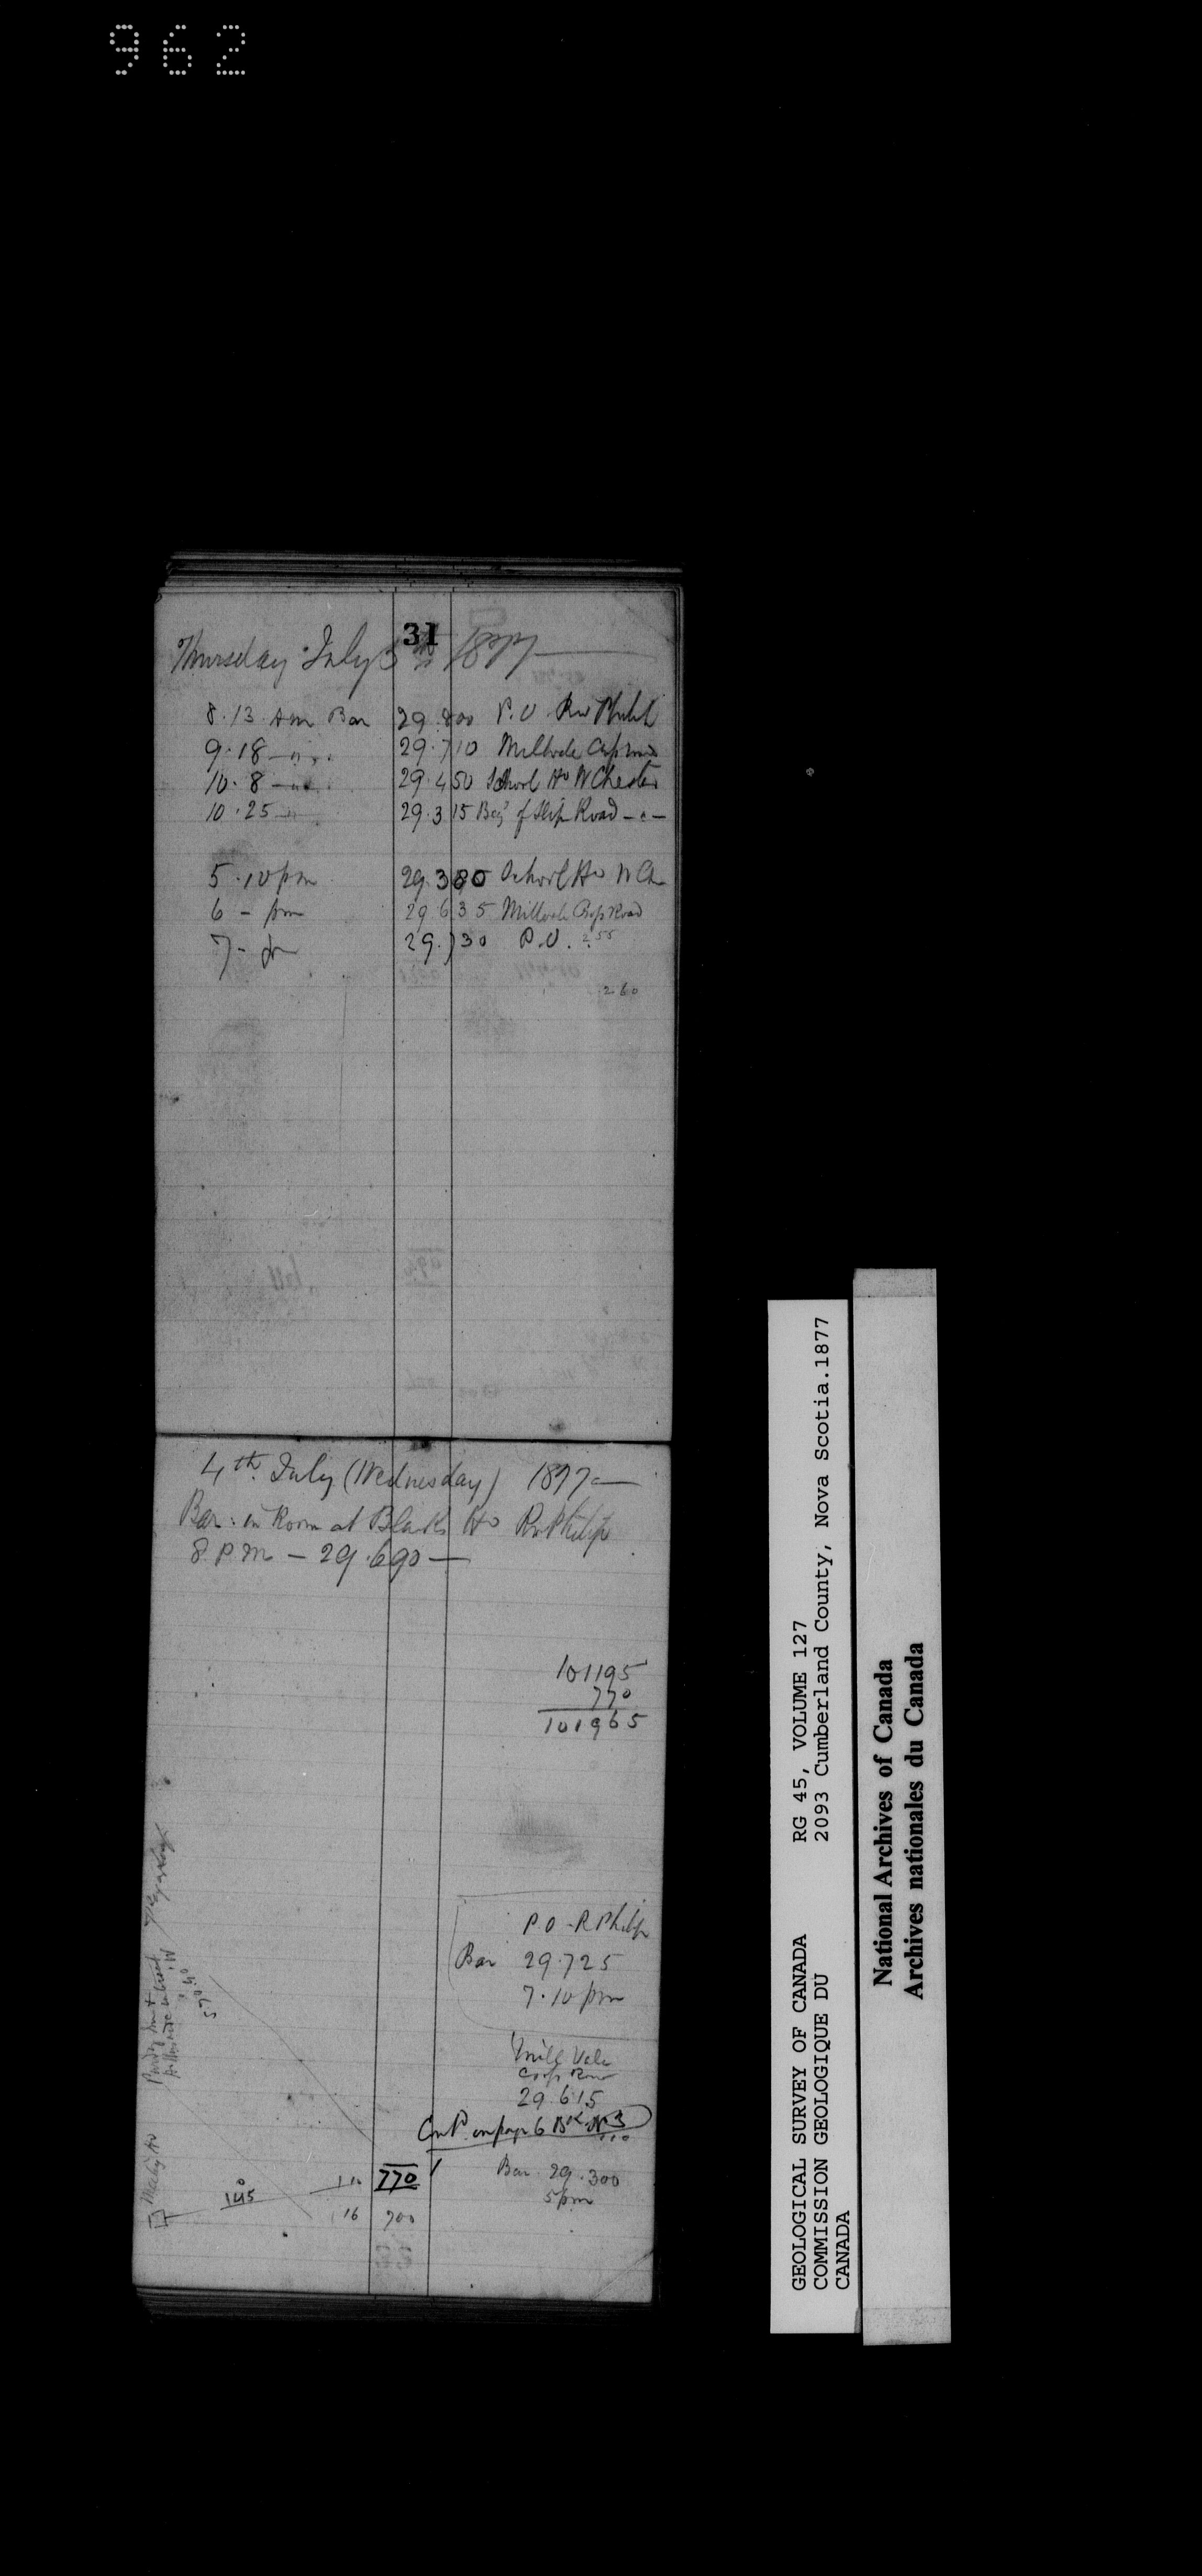 962
31
Thursday July 5th 1877
8.13 Am Bar 29.800 P.O. Riv Philip
9.18 — " . 29.710 Millvale Cross Road
10.8 — " . 29.450 School Ho W Chester
10.25 — " 29.315 Beg of Slip Road — " —
5.10 pm 29.380 School Ho W Ch
6 - pm 29.635 Millvale Cross Road
7 - pm 29.730 P.O. .255
.260
4th July (Wednesday) 1877 —
Bar. in Room at Blacks Ho Riv Philip
8 P.M — 29.690 —
101195
770
101965
P.O - R Philip
Bar 29.725
7.10 pm
Mill Vale
Cross Road
29.615
Contd. on page 6 Bk No 3
770
Bar 29.300
5 pm
145
16 700
570.40
GEOLOGICAL SURVEY OF CANADA RG 45, VOLUME 127
COMMISSION GEOLOGIQUE DU 2093 Cumberland County, Nova Scotia.1877
CANADA
National Archives of Canada
Archives nationales du Canada